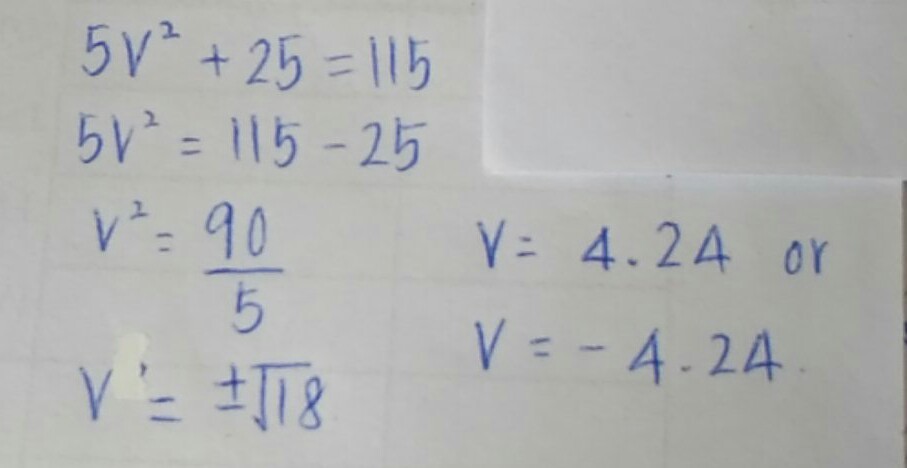 5V² + 25 = 115
5V² = 115 - 25
V² = 90/5
V = ±√18
V = 4.24 or
V = - 4.24.